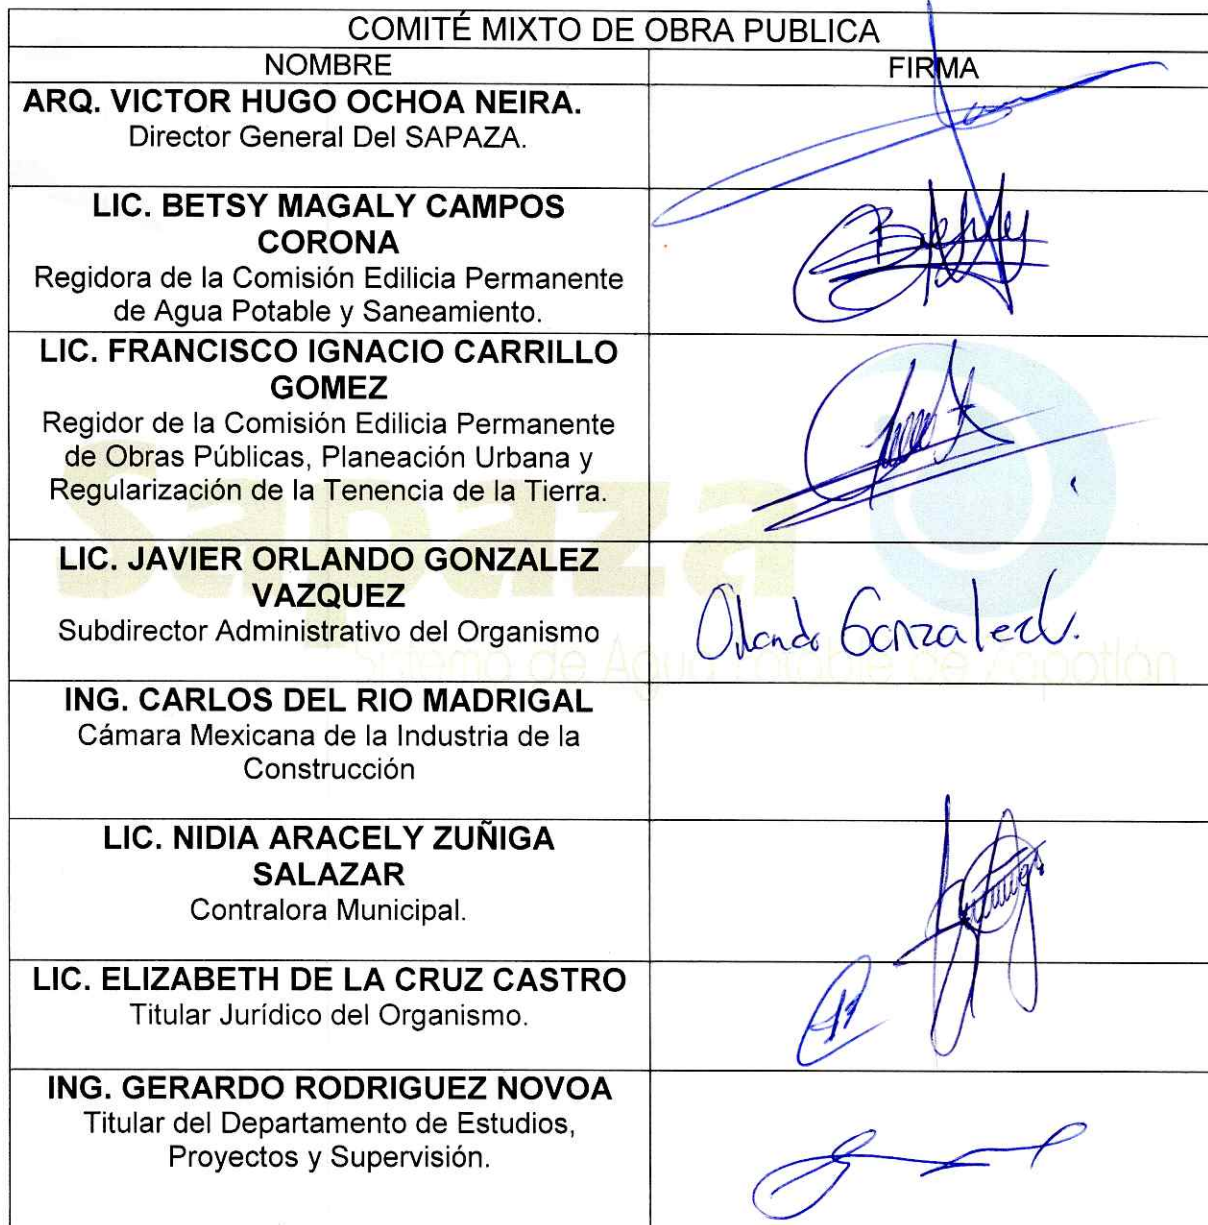 COMITÉ MIXTO DE OBRA PUBLICA
NOMBRE
FIRMA
ARQ. VICTOR HUGO OCHOA NEIRA.
Director General Del SAPAZA.
LIC. BETSY MAGALY CAMPOS
CORONA
Regidora de la Comisión Edilicia Permanente
de Agua Potable y Saneamiento.
LIC. FRANCISCO IGNACIO CARRILLO
GOMEZ
Regidor de la Comisión Edilicia Permanente
de Obras Públicas, Planeación Urbana y
Regularización de la Tenencia de la Tierra.
Sapaza
LIC. JAVIER ORLANDO GONZALEZ
VAZQUEZ
Subdirector Administrativo del Organismo
Orlando Gonzalez V.
Sistema de Agua Potable de Zapotlán
ING. CARLOS DEL RIO MADRIGAL
Cámara Mexicana de la Industria de la
Construcción
LIC. NIDIA ARACELY ZUÑIGA
SALAZAR
Contralora Municipal.
LIC. ELIZABETH DE LA CRUZ CASTRO
Titular Jurídico del Organismo.
ING. GERARDO RODRIGUEZ NOVOA
Titular del Departamento de Estudios,
Proyectos y Supervisión.